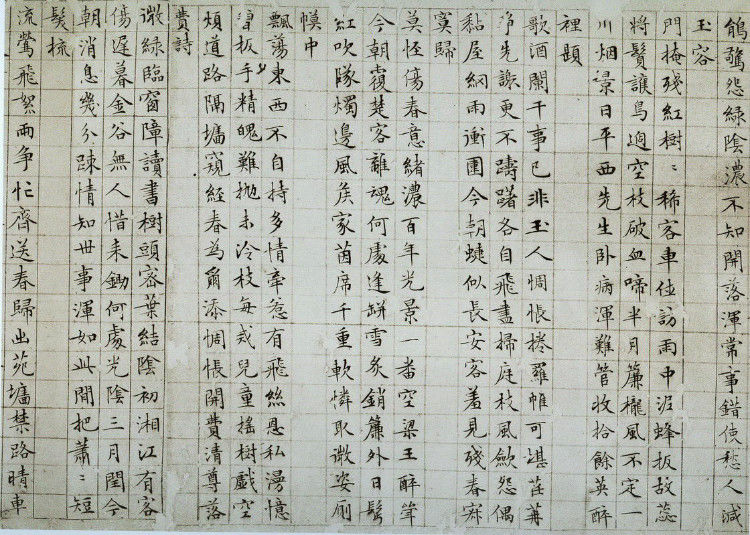 聲怨綠陰濃不知開落渾常事錯使愁人減
玉容
門掩殘紅樹〻稀客車休訪雨中泥蜂扳故蕊
將鬚護鳥過空枝破血啼半月簾櫳風不定一
川烟景日平西先生臥病渾難管收拾餘英醉
裡題
歌酒闌干事已非玉人惆悵捲羅帷可堪荏苒
爭先謝更不躊躇各自飛盡掃庭枝風歛怨偶
黏屋網雨衝圍今朝蜨似長安客羞見殘春寂
寞歸
莫怪傷春意緒濃百年光景一番空梁王醉聳
今朝覆楚客離魂何處逢缾雪炙銷簾外日髩
紅吹隊燭邊風矦家茵席千重軟憐取微姿廁
幙中
飄蕩東西不自持多情牽惹有飛絲恩私漫憶
曾扳手精魄難拋未冷枝每戒兒童搖樹戲空
煩道路隔墻窺經春為爾添惆悵開費清尊落
費詩
微綠臨窗障讀書樹頭密葉結陰初湘江有客
傷遲暮金谷無人惜耒鋤何處光陰三月閏今
朝消息幾分疎情知世事渾如此閒把蕭〻短
髮梳
流鶯飛絮兩爭忙齊送春歸出苑墻禁路晴車